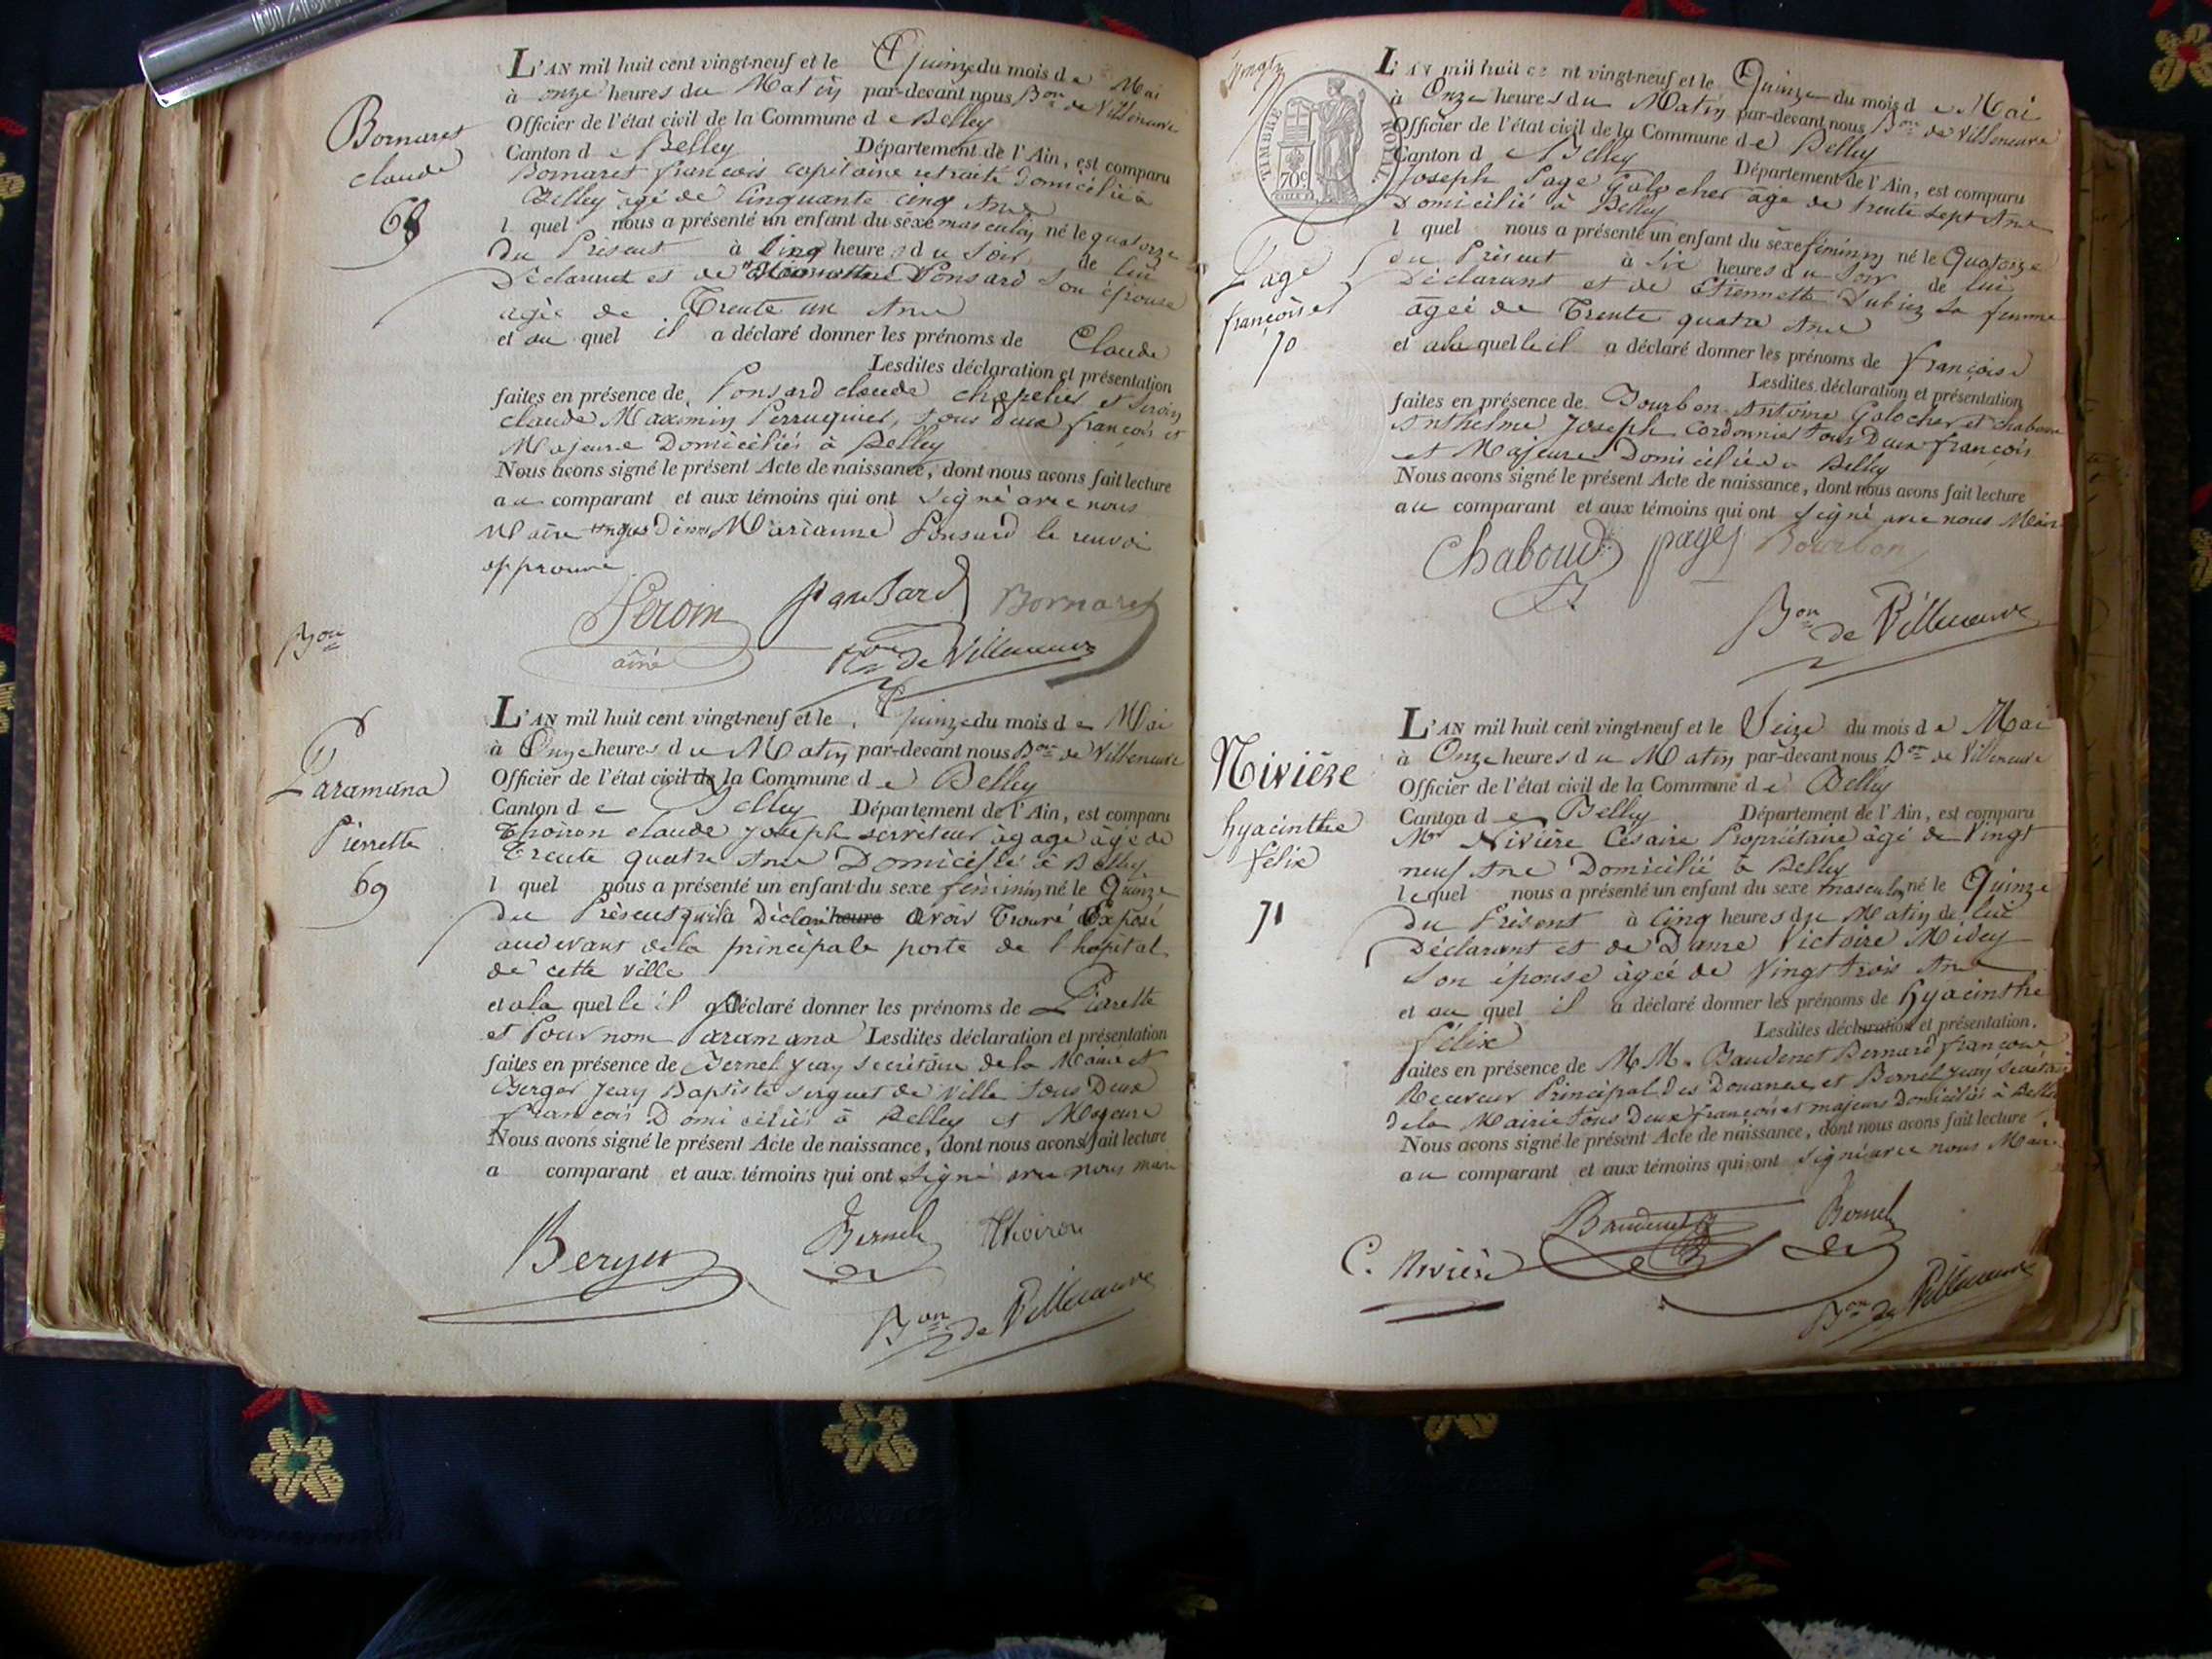 Bornaret
claude
68
L'AN mil huit cent vingt-neuf et le Quinze du mois de Mai
à onze heures du Matin par-devant nous Bon de Villeneuve
Officier de l'état civil de la Commune de Belley
Canton de Belley Département de l'Ain, est comparu
Bornaret francois capitaine retraité Domicilié à
Belley âgé de Cinquante cinq Ans
l quel nous a présenté un enfant du sexe masculin né le quatorze
du Présent à Cinq heures du Soir de lui
Déclarant et de Ponsard son épouse
agée de Trente un Ans
et au quel il a déclaré donner les prénoms de Claude
Lesdites déclaration et présentation
faites en présence de Ponsard claude chapelier et Seroin
claude Maximin Perruquier, tous deux françois et
Majeurs Domiciliés à Belley
Nous avons signé le présent Acte de naissance, dont nous avons fait lecture
au comparant et aux témoins qui ont signé avec nous
Maire Marianne Ponsard le renvoi
approuvé
Seroin ponsard Bornaret
aîné Bon de Villeneuve
Bon
Paramana
Pierrette
69
L'AN mil huit cent vingt-neuf et le Quinze du mois de Mai
à Onze heures du Matin par-devant nous Bon de Villeneuve
Officier de l'état civil de la Commune de Belley
Canton de Belley Département de l'Ain, est comparu
Thoiron claude Joseph serviteur àgage âgé de
Trente quatre Ans Domicilié à Belley
l quel nous a présenté un enfant du sexe féminin né le Quinze
du Présent qu'il a Déclaré heure avoir Trouvé Exposé
audevant dela principale porte de l'hopital
de cette ville
et ala quelle il a déclaré donner les prénoms de Pierette
et Pour nom Paramana Lesdites déclaration et présentation
faites en présence de Bernel Jean secrétaire de la Mairie et
Berger Jean Baptiste sergent de Ville tous Deux
françois Domiciliés à Belley et Majeurs
Nous avons signé le présent Acte de naissance, dont nous avons fait lecture
a comparant et aux témoins qui ont signé avec nous maire
Berger Bernel Thoiron
Bon de Villeneuve
TIMBRE ROYAL
70c
Page
françoise
70
L'AN mil huit cent vingt-neuf et le Quinze du mois de Mai
à Onze heures du Matin par-devant nous Bon de Villeneuve
Officier de l'état civil de la Commune de Belley
Canton de Belley Département de l'Ain, est comparu
Joseph Page Galocher âgé de trente sept Ans
Domicilié à Belley
l quel nous a présenté un enfant du sexe féminin né le Quatorze
du Présent à six heures du Soir de lui
Déclarant et de Etiennette Dubiez sa femme
âgée de Trente quatre Ans
et ala quelle il a déclaré donner les prénoms de françoise
Lesdites déclaration et présentation
faites en présence de Bourbon Antoine Galocher et chaboud
Anthelme Joseph Cordonnier tous Deux françois
et Majeurs Domiciliés à Belley
Nous avons signé le présent Acte de naissance, dont nous avons fait lecture
au comparant et aux témoins qui ont signé avec nous Maire
Chaboud page Bourbon
Bon de Villeneuve
Nivière
hyacinthe
félix
71
L'AN mil huit cent vingt-neuf et le Seize du mois de Mai
à Onze heures du Matin par-devant nous Bon de Villeneuve
Officier de l'état civil de la Commune de Belley
Canton de Belley Département de l'Ain, est comparu
Mr Nivière Césaire Propriétaire âgé de Vingt
neuf Ans Domicilié à Belley
lequel nous a présenté un enfant du sexe masculin né le Quinze
du Présent à Cinq heures du Matin de lui
Déclarant et de Dame Victoire Midey
son épouse âgée de Vingt trois Ans
et au quel il a déclaré donner les prénoms de hyacinthe
félix Lesdites déclaration et présentation.
faites en présence de MM. Baudenet Bernard françois
Receveur Principal Des Douanes et Bernel Jean Secrétaire
dela Mairie tous Deux françois et majeurs Domiciliés à Belley
Nous avons signé le présent Acte de naissance, dont nous avons fait lecture
au comparant et aux témoins qui ont signé avec nous Maire
C. Nivière Baudenet Bernel
Bon de Villeneuve